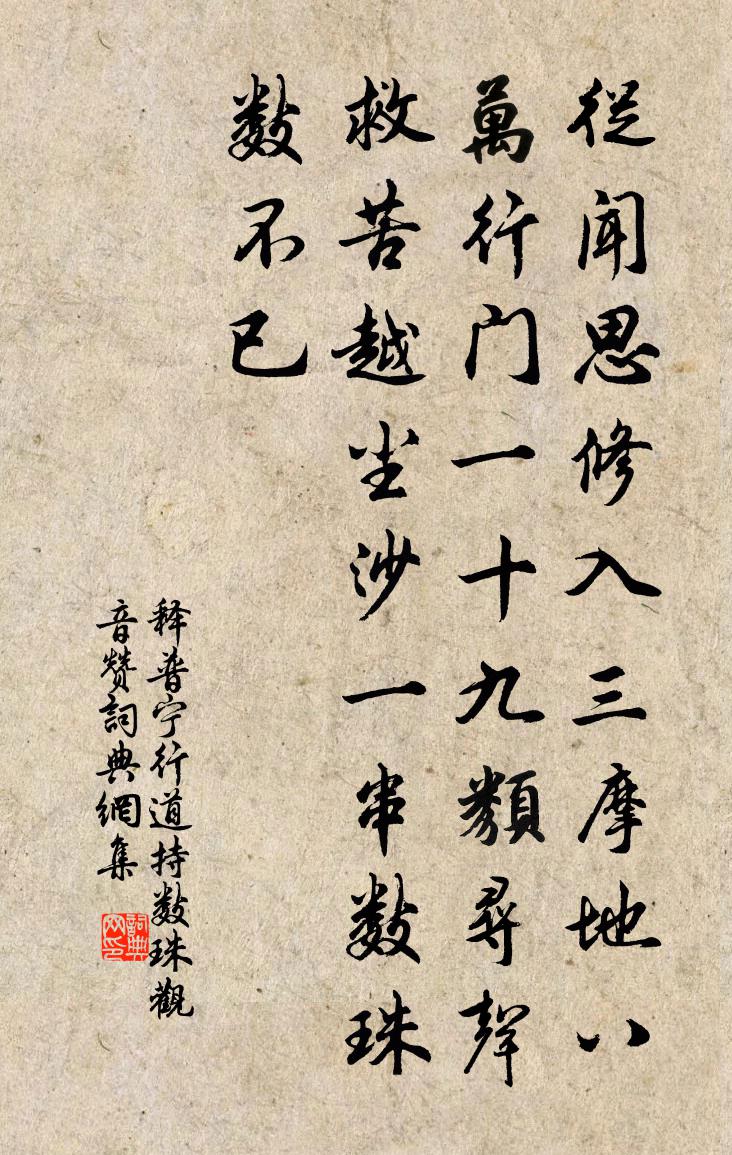 從聞思修入三摩地八
萬行門一十九類尋聲
救苦越塵沙一串数珠
数不已
释普宁行道持数珠觀
音赞詞典網集
詞典网印